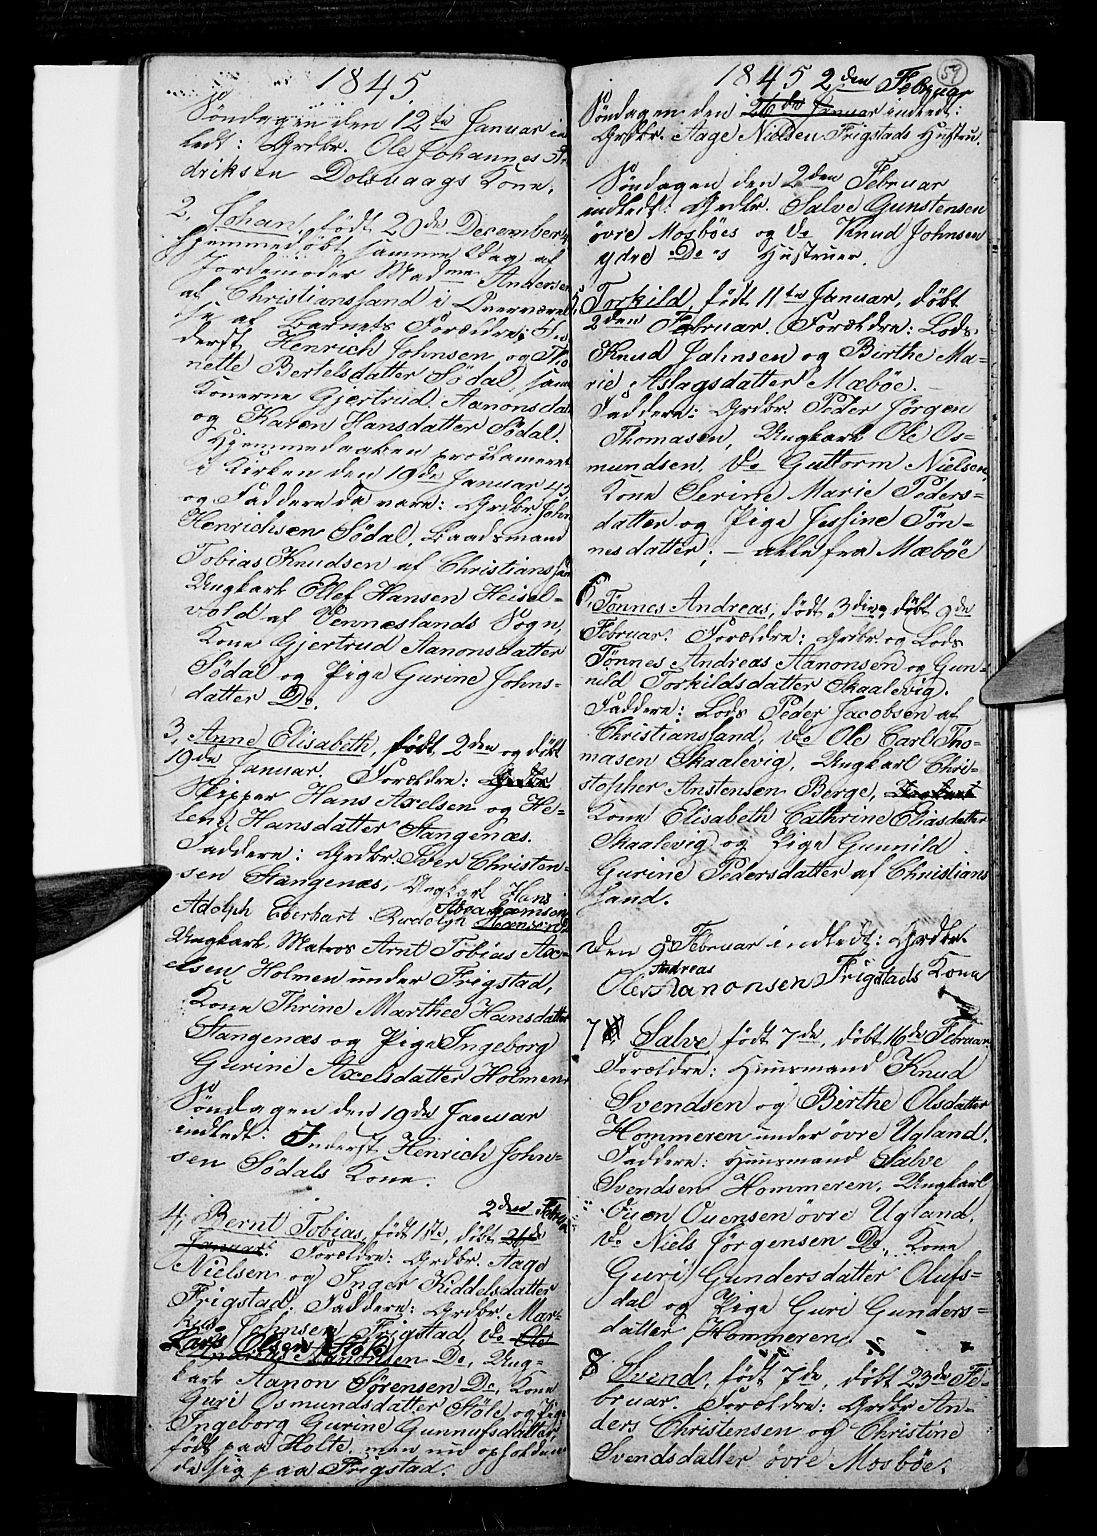 1845.
Søndagen den 12te Januar in
ledt: Grdbr. Ole Johannes
driksen Dolsvaags Kone.
2, Johan, født 20de December
hjemmedøbt samme Dag af
Jordemoder Madme Andersen
af Christianssand i Overværel
se af Barnets Forældre: In
derst Henrich Johnsen og Tho
nette Bertelsdatter Södal, samt
Konerne Gjertrud Aanonsdatt
og Karen Hansdatter Södal.
Hjemmedaaben proclameret
i Kirken den 19de Januar 45
og Faddere da vare: Grdbr. John
Henrichsen Södal, Baadsmand
Tobias Knudsen af Christianssan
Ungkarl Ellef Hansen Heisel-
vold af Venneslands Sogn,
Kone Gjertrud Aanonsdatter
Södal og Pige Gurine Johns-
datter Do.
3, Anne Elisabeth, født 2den og døbt
19de Januar. Forældre:
Skipper Hans Axelsen og He-
lene Hansdatter Stangenæs.
Faddere: Grdbr. Peer Christen-
sen Stangenæs, Ungkarl Hans
Adolph Eberhart Rudolph Abrahamson
Ungkarl Matros Arnt Tobias Ax-
elsen Holmen under Frigstad,
Kone Thrine Marthee Hansdatter
Stangenæs og Pige Ingeborg
Gurine Axelsdatter Holmen
Søndagen den 19de Januar
indledt: Inderst Henrich John-
sen Södals Kone.
2den Februar
4, Bernt Tobias, født 1ste, døbt 26de
Januar. Forældre: Grdbr. Aage
Nielsen og Inger Kiddelsdatter
Frigstad. Faddere: Grdbr. Mar-
kus Johnsen Frigstad, do Ole
Lars Olsen Støle
Andreas Aanonsen Do, Ung-
karl Aanon Sørensen Do, Kone
Guri Osmundsdatter Støle, og Pige
Ingeborg Gurine Gunnufsdatter,
født paa Holte, men nu opholden
de sig paa Frigstad.
59
1845 2den Februar
Søndagen den 26de Januar indledt:
Grdbr. Aage Nielsen Frigstads Hustru.
Søndagen den 2den Februar
indledt: Grdbr. Salve Gunstensen
øvre Mosböes og do Knud Johnsen
ydre Do's Hustruer.
5, Torkild, født 11te Januar, døbt
2den Februar. Forældre: Lods
Knud Jahnsen og Birthe Ma-
rie Aslagsdatter Mæbøe. —
Faddere: Grdbr. Peder Jørgen
Thomasen, Ungkarl Ole Os-
mundsen, do Guttorm Nielsen,
Kone Serine Marie Peders-
datter og Pige Jessine Tön-
nesdatter; — alle fra Mæbøe
6, Tønnes Andreas, født 3die, døbt 9de
Februar. Forældre: Grdbr. og Lods
Tønnes Andreas Aanonsen og Gun-
nild Torkildsdatter Skaalevig.
Faddere: Lods Peder Jacobsen af
Christianssand, do Ole Carl Tho-
masen Skaalevig, Ungkarl Chri-
stopher Anstensen Berge,
Kone Elisabeth Cathrine Eliasdatter
Skaalevig og Pige Gunnild
Gurine Pedersdatter af Christians
sand.
Den 9de Februar indledt: Grdbr.
Ole Andreas Aanonsen Frigstads Kone
7 Salve født 7de, døbt 16de Februar
Forældre: Huusmand Knud
Svendsen og Birthe Olsdatter
Hommeren under øvre Ugland.
Faddere: Huusmand Salve
Svendsen Hommeren, Ungkarl
Ouen Ouensen øvre Ugland,
do Niels Jørgensen Do, Kone
Guri Gundersdatter Olufs-
dal og Pige Guri Gunders-
datter Hommeren
8 Svend, født 7de, døbt 23de Fe-
bruar. Forældre: Grdbr An-
ders Christensen og Christine
Svendsdatter øvre Mosböe.